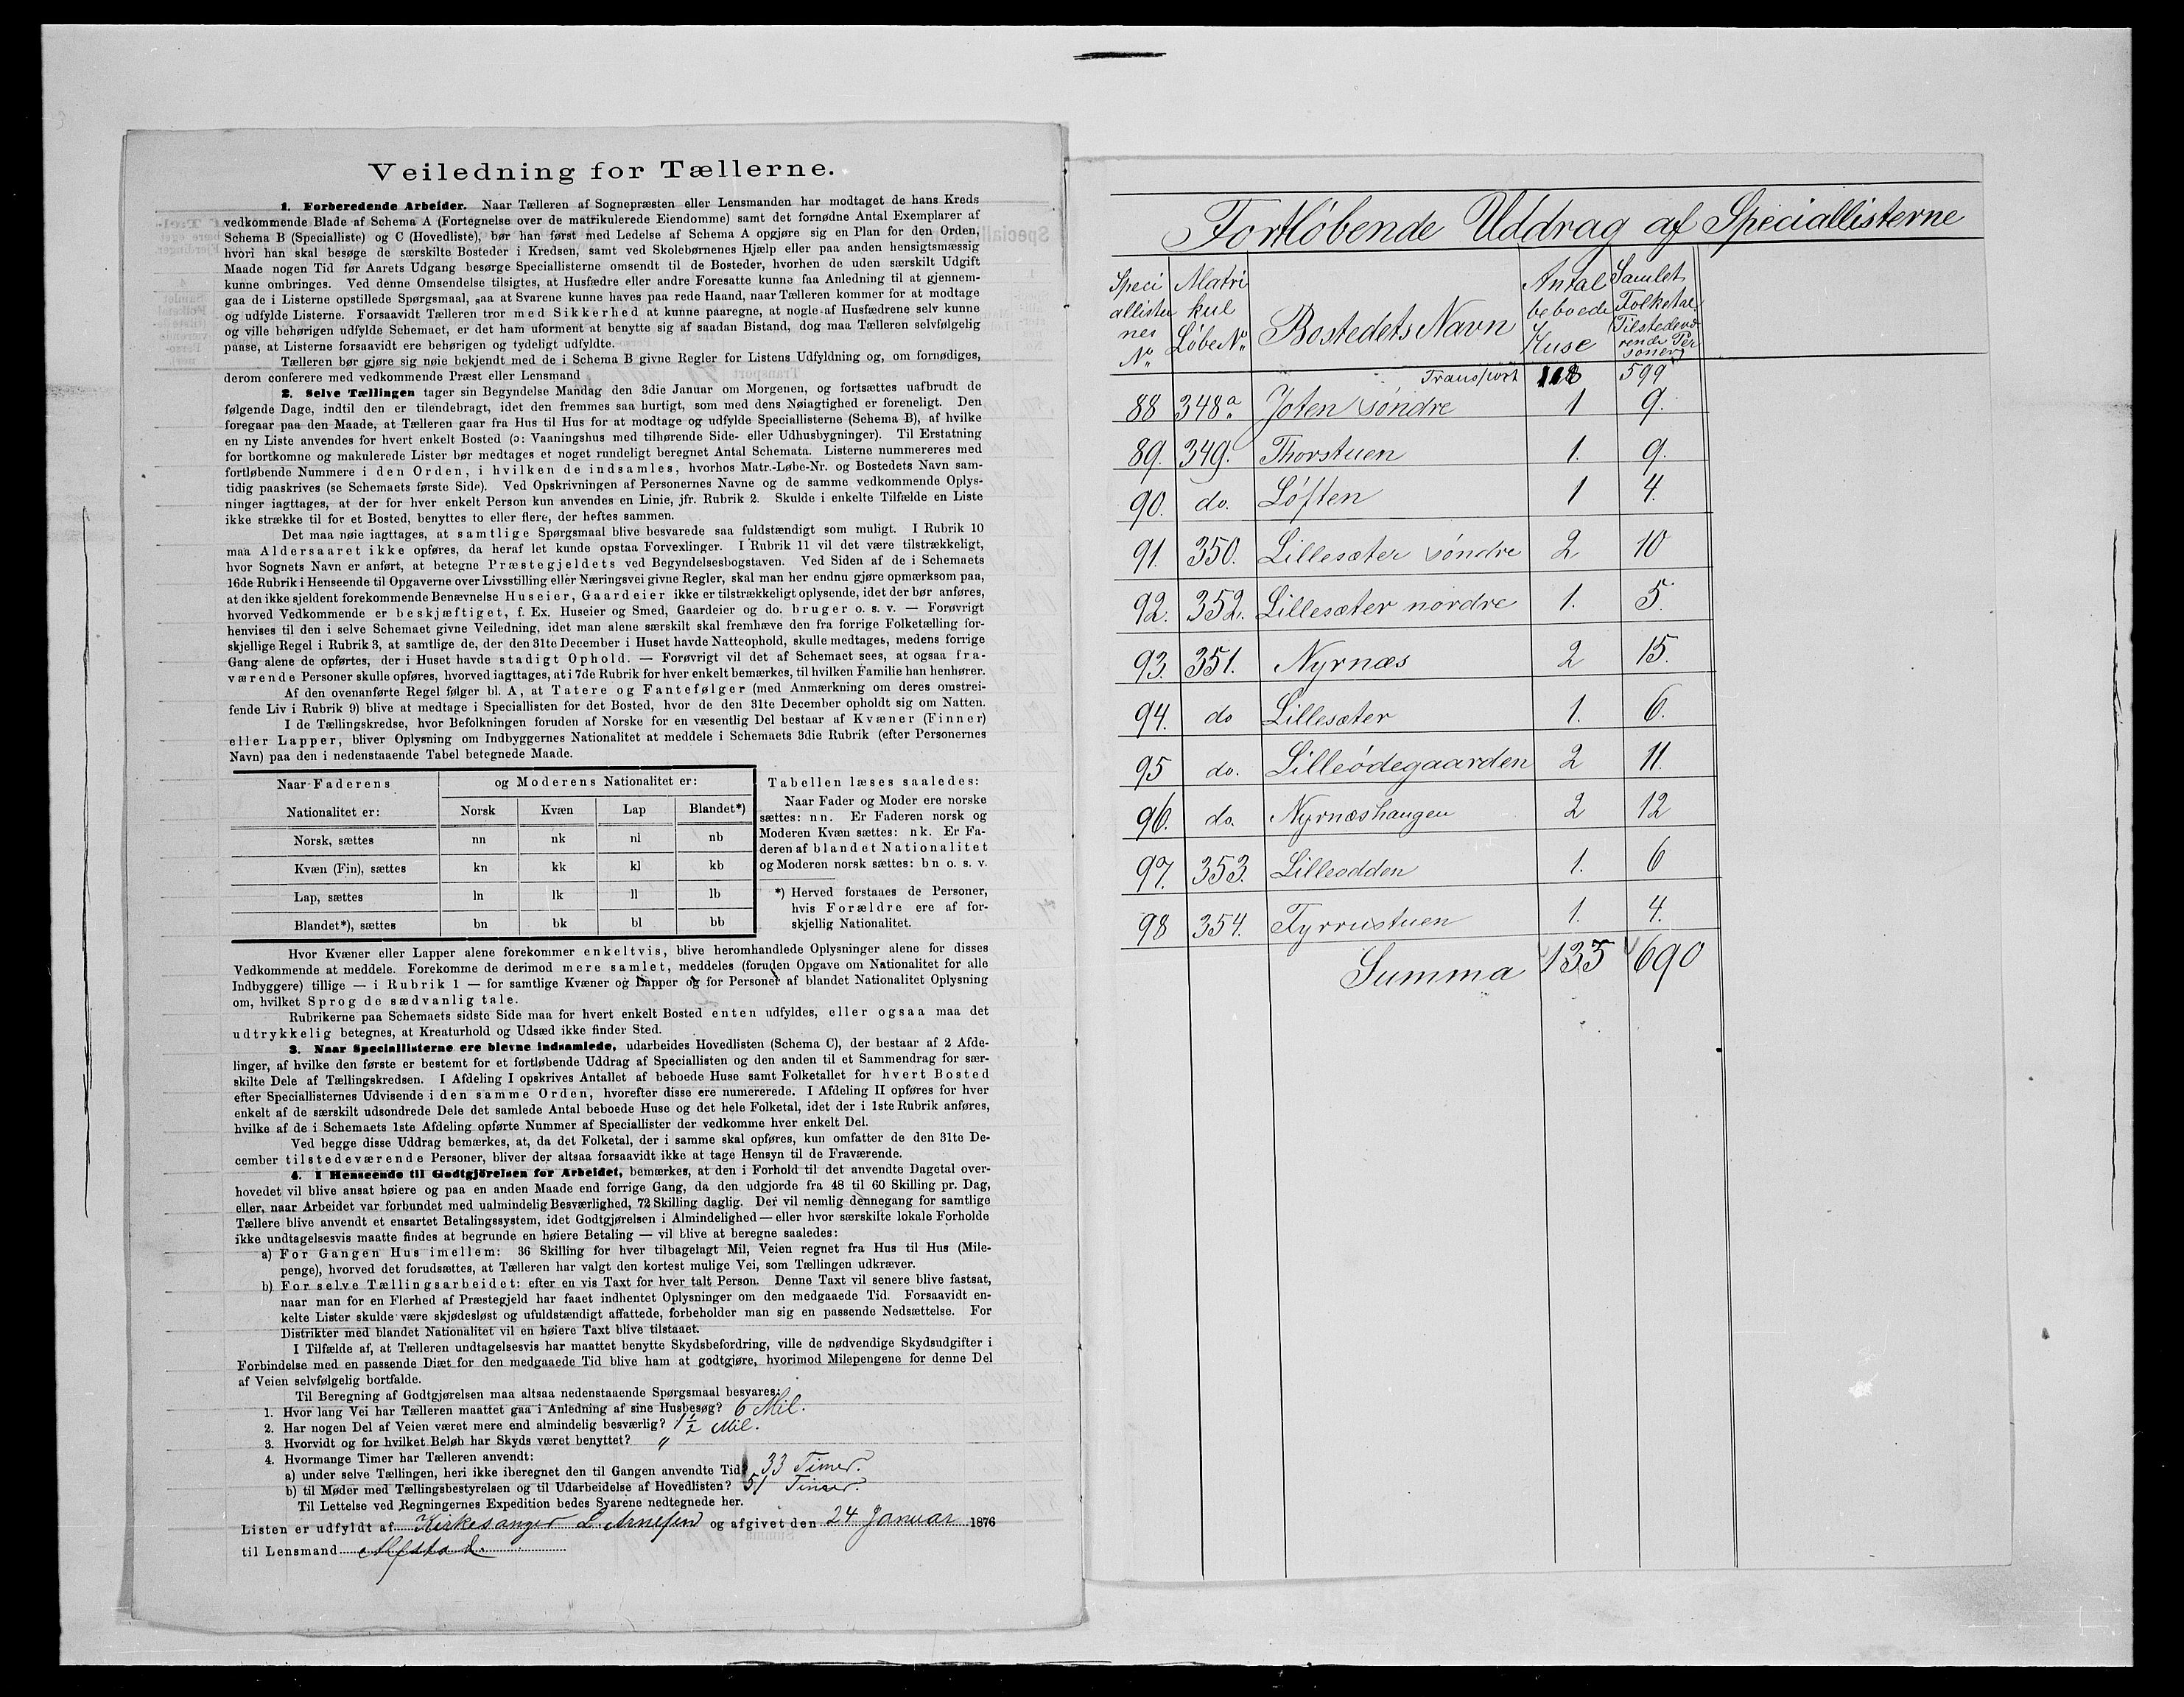 Veiledning for Tællerne.
1. Forberedende Arbeider. Naar Tælleren af Sognepræsten eller Lensmanden har modtaget de hans Kreds
vedkommende Blade af Schema A (Fortegnelse over de matrikulerede Eiendomme) samt det fornødne Antal Exemplarer af
Schema B (Specialliste) og C (Hovedliste), bør han først med Ledelse af Schema A opgjøre sig en Plan for den Orden,
hvori han skal besøge de særskilte Bosteder i Kredsen, samt ved Skolebørnenes Hjælp eller paa anden hensigtsmæssig
Maade nogen Tid før Aarets Udgang besørge Speciallisterne omsendt til de Bosteder, hvorhen de uden særskilt Udgift
kunne ombringes. Ved denne Omsendelse tilsigtes, at Husfædre eller andre Foresatte kunne faa Anledning til at gjennem-
gaa de i Listerne opstillede Spørgsmaal, saa at Svarene kunne haves paa rede Haand, naar Tælleren kommer for at modtage
og udfylde Listerne. Forsaavidt Tælleren tror med Sikkerhed at kunne paaregne, at nogle af Husfædrene selv kunne
og ville behørigen udfylde Schemaet, er det ham uforment at benytte sig af saadan Bistand, dog maa Tælleren selvfølgelig
paase, at Listerne forsaavidt ere behørigen og tydeligt udfyldte.
Tælleren bør gjøre sig nøie bekjendt med de i Schema B givne Regler for Listens Udfyldning og, om fornødiges,
derom conferere med vedkommende Præst eller Lensmand
2. Selve Tællingen tager sin Begyndelse Mandag den 3die Januar om Morgenen, og fortsættes uafbrudt de
følgende Dage, indtil den er tilendebragt, idet den fremmes saa hurtigt, som med dens Nøiagtighed er foreneligt. Den
foregaar paa den Maade, at Tælleren gaar fra Hus til Hus for at modtage og udfylde Speciallisterne (Schema B), af hvilke
en ny Liste anvendes for hvert enkelt Bosted (ɔ: Vaaningshus med tilhørende Side- eller Udhusbygninger). Til Erstatning
for bortkomne og makulerede Lister bør medtages et noget rundeligt beregnet Antal Schemata. Listerne nummereres med
fortløbende Nummere i den Orden, i hvilken de indsamles, hvorhos Matr.-Løbe-Nr. og Bostedets Navn sam-
tidig paaskrives (se Schemaets første Side). Ved Opskrivningen af Personernes Navne og de samme vedkommende Oplys-
ninger iagttages, at der for hver enkelt Person kun anvendes en Linie, jfr. Rubrik 2. Skulde i enkelte Tilfælde en Liste
ikke strække til for et Bosted, benyttes to eller flere, der heftes sammen.
Det maa nøie iagttages, at samtlige Spørgsmaal blive besvarede saa fuldstændigt som muligt. I Rubrik 10
maa Aldersaaret ikke opføres, da heraf let kunde opstaa Forvexlinger. I Rubrik 11 vil det være tilstrækkeligt,
hvor Sognets Navn er anført, at betegne Præstegjeldets ved Begyndelsesbogstaven. Ved Siden af de i Schemaets
16de Rubrik i Henseende til Opgaverne over Livsstilling eller Næringsvei givne Regler, skal man her endnu gjøre opmærksom paa,
at den ikke sjeldent forekommende Benævnelse Huseier, Gaardeier ikke er tilstrækkeligt oplysende, idet der bør anføres,
hvorved Vedkommende er beskjæftiget, f. Ex. Huseier og Smed, Gaardeier og do. bruger o. s. v. — Forøvrigt
henvises til den i selve Schemaet givne Veiledning, idet man alene særskilt skal fremhæve den fra forrige Folketælling for-
skjellige Regel i Rubrik 3, at samtlige de, der den 31te December i Huset havde Natteophold, skulle medtages, medens forrige
Gang alene de opførtes, der i Huset havde stadigt Ophold. — Forøvrigt vil det af Schemaet sees, at ogsaa fra-
værende Personer skulle opføres, hvorved iagttages, at i 7de Rubrik for hver enkelt bemærkes, til hvilken Familie han henhører.
Af den ovenanførte Regel følger bl. A, at Tatere og Fantefølger (med Anmærkning om deres omstrei-
fende Liv i Rubrik 9) blive at medtage i Speciallisten for det Bosted, hvor de den 31te December opholdt sig om Natten.
I de Tællingskredse, hvor Befolkningen foruden af Norske for en væsentlig Del bestaar af Kvæner (Finner)
eller Lapper, bliver Oplysning om Indbyggernes Nationalitet at meddele i Schemaets 3die Rubrik (efter Personernes
Navn) paa den i nedenstaaende Tabel betegnede Maade.
Naar Faderens og Moderens Nationalitet er:
Nationalitet er: Norsk Kvæn Lap Blandet*)
Norsk, sættes nn nk nl nb
Kvæn (Fin), sættes kn kk kl kb
Lap, sættes ln lk ll lb
Blandet*), sættes bn bk bl bb
Tabellen læses saaledes:
Naar Fader og Moder ere norske
sættes: nn. Er Faderen norsk og
Moderen Kvæn sættes: nk. Er Fa-
deren af blandet Nationalitet
og Moderen norsk sættes: bn o. s. v.
*) Herved forstaaes de Personer,
hvis Forældre ere af for-
skjellig Nationalitet.
Hvor Kvæner eller Lapper alene forekommer enkeltvis, blive heromhandlede Oplysninger alene for disses
Vedkommende at meddele. Forekomme de derimod mere samlet, meddeles (foruden Opgave om Nationalitet for alle
Indbyggere) tillige — i Rubrik 1 — for samtlige Kvæner og Lapper og for Personer af blandet Nationalitet Oplysning
om, hvilket Sprog de sædvanlig tale.
Rubrikerne paa Schemaets sidste Side maa for hvert enkelt Bosted enten udfyldes, eller ogsaa maa det
udtrykkelig betegnes, at Kreaturhold og Udsæd ikke finder Sted.
3. Naar Speciallisterne ere blevne indsamlede, udarbeides Hovedlisten (Schema C), der bestaar af 2 Afde-
linger, af hvilke den første er bestemt for et fortløbende Uddrag af Speciallisten og den anden til et Sammendrag for sær-
skilte Dele af Tællingskredsen. I Afdeling I opskrives Antallet af beboede Huse samt Folketallet for hvert Bosted
efter Speciallisternes Udvisende i den samme Orden, hvorefter disse ere numererede. I Afdeling II opføres for hver
enkelt af de særskilt udsondrede Dele det samlede Antal beboede Huse og det hele Folketal, idet der i 1ste Rubrik anføres,
hvilke af de i Schemaets 1ste Afdeling opførte Nummer af Speciallister der vedkomme hver enkelt Del.
Ved begge disse Uddrag bemærkes, at, da det Folketal, der i samme skal opføres, kun omfatter de den 31te De-
cember tilstedeværende Personer, bliver der altsaa forsaavidt ikke at tage Hensyn til de Fraværende.
4. I Henseende til Godtgjörelsen for Arbeidet, bemærkes, at den i Forhold til det anvendte Dagetal over-
hovedet vil blive ansat høiere og paa en anden Maade end forrige Gang, da den udgjorde fra 48 til 60 Skilling pr. Dag,
eller, naar Arbeidet var forbundet med ualmindelig Besværlighed, 72 Skilling daglig. Der vil nemlig dennegang for samtlige
Tællere blive anvendt et ensartet Betalingssystem, idet Godtgjørelsen i Almindelighed — eller hvor særskilte lokale Forholde
ikke undtagelsesvis maatte findes at begrunde en høiere Betaling — vil blive at beregne saaledes:
a) For Gangen Hus imellem: 36 Skilling for hver tilbagelagt Mil, Veien regnet fra Hus til Hus (Mile-
penge), hvorved det forudsættes, at Tælleren har valgt den kortest mulige Vei, som Tællingen udkræver.
b) For selve Tællingsarbeidet: efter en vis Taxt for hver talt Person. Denne Taxt vil senere blive fastsat,
naar man for en Flerhed af Præstegjeld har faaet indhentet Oplysninger om den medgaaede Tid. Forsaavidt en-
kelte Lister skulde være skjødesløst og ufuldstændigt affattede, forbeholder man sig en passende Nedsættelse. For
Distrikter med blandet Nationalitet vil en høiere Taxt blive tilstaaet.
I Tilfælde af, at Tælleren undtagelsesvis har maattet benytte Skydsbefordring, ville de nødvendige Skydsudgifter i
Forbindelse med en passende Diæt for den medgaaede Tid blive ham at godtgjøre, hvorimod Milepengene for denne Del
af Veien selvfølgelig bortfalde.
Til Beregning af Godtgjørelsen maa altsaa nedenstaaende Spørgsmaal besvares:
1. Hvor lang Vei har Tælleren maattet gaa i Anledning af sine Husbesøg? 6 Mil.
2. Har nogen Del af Veien været mere end almindelig besværlig? 1½ Mil.
3. Hvorvidt og for hvilket Beløb har Skyds været benyttet? "
4. Hvormange Timer har Tælleren anvendt:
a) under selve Tællingen, heri ikke iberegnet den til Gangen anvendte Tid? 33 Timer.
b) til Møder med Tællingsbestyrelsen og til Udarbeidelse af Hovedlisten? 51 Timer.
Til Lettelse ved Regningernes Expedition bedes Svarene nedtegnede her.
Listen er udfyldt af Kirkesanger L. Arnesen og afgivet den 24 Januar 1876
til Lensmand
Fortløbende Uddrag af Speciallisterne
Speciallisternes No Matrikul LøbeNo Bostedets Navn Antal beboede Huse Samlet Folketal Tilstedeværende Personer
Transport 118 599
88 348a Joten søndre 1 9.
89. 349. Thorstuen 1. 9.
90. do. Løften 1 4.
91. 350. Lillesæter søndre 2 10
92. 352. Lillesæter nordre 1. 5.
93. 351. Nyrnæs 2 15.
94. do Lillesæter 1. 6.
95 do. Lilleödegaarden 2 11.
96. do. Nyrnæshaugen 2 12
97. 353. Lilleodden 1. 6
98 354. Tyrrustuen 1. 4.
Summa 135 690